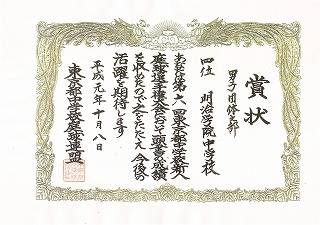 賞状
男子団体の部
四位 明治学院中学校
あなたは第六回東京都中学校新人
庭球選手権大会において頭書の成績
を収めましたのでこれをたたえ今後の
活躍を期待します
平成元年十月八日
東京都中学校庭球連盟